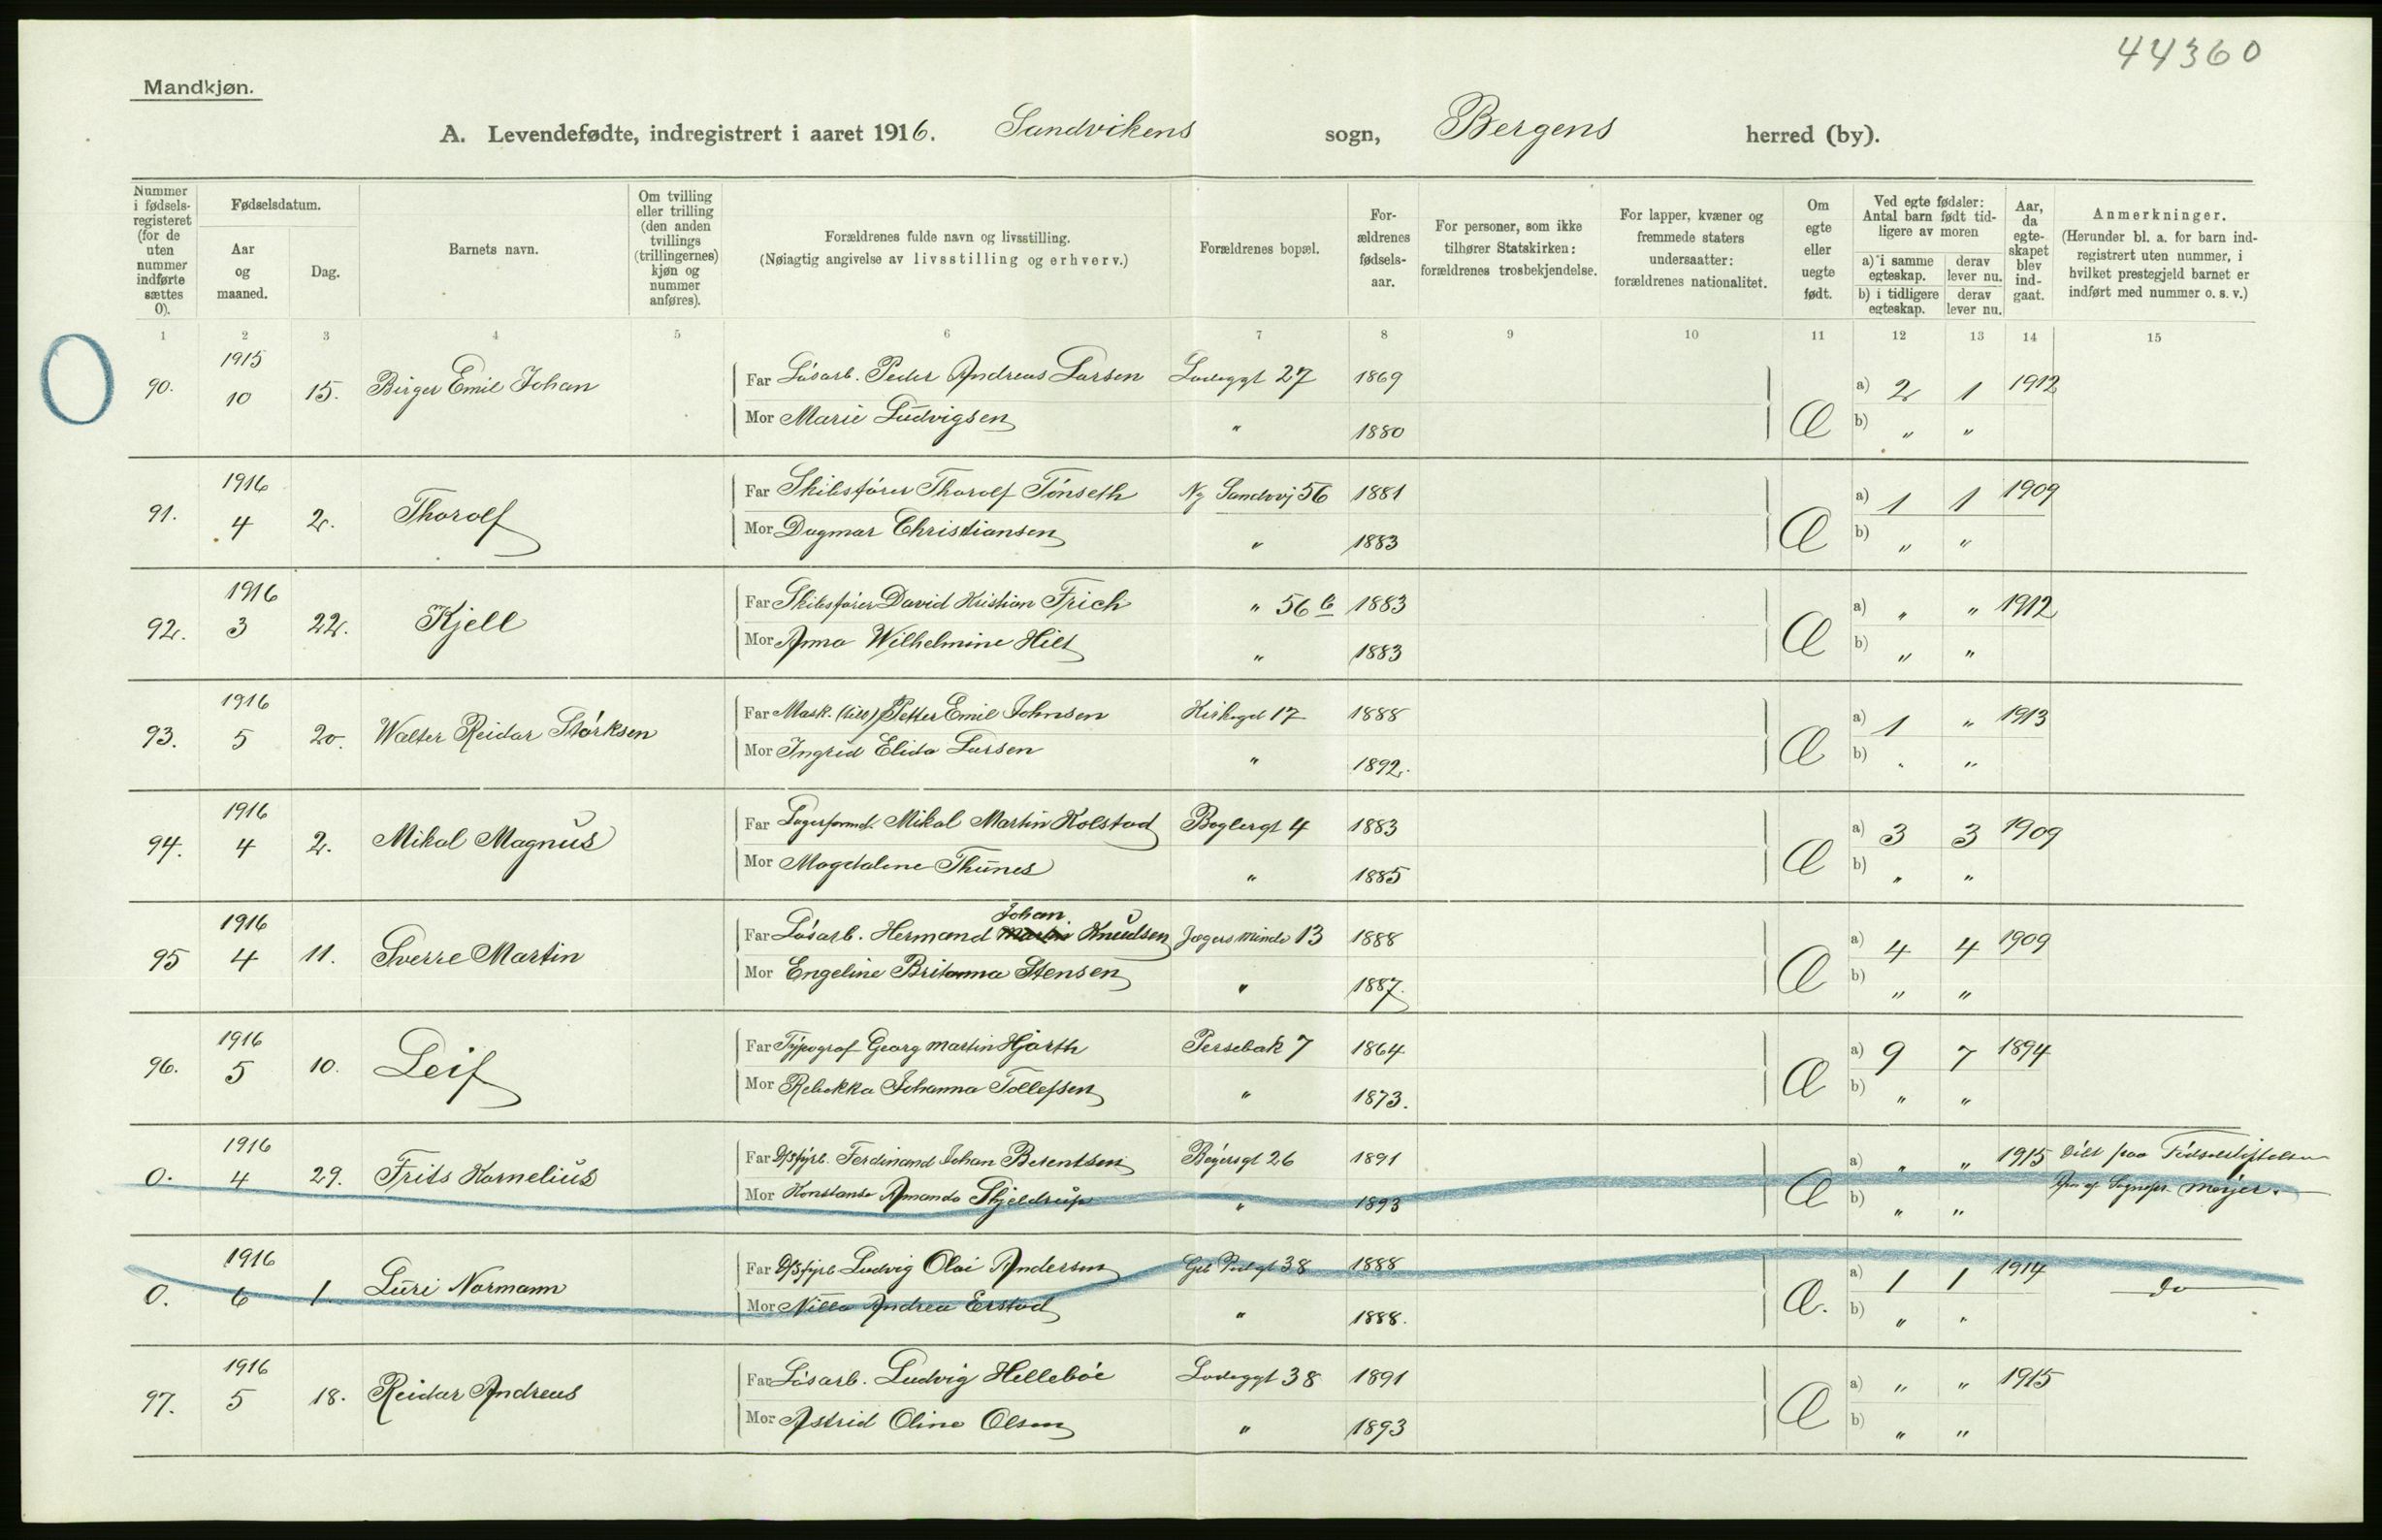 44360
Mandkjøn.
A. Levendefødte, indregistrert i aaret 1916. Sandvikens sogn, Bergens herred (by).
Nummer i fødsels-registeret (for de uten nummer indførte sættes 0).
Fødselsdatum.
Aar og maaned.
Dag.
Barnets navn.
Om tvilling eller trilling (den anden tvillings (trillingernes) kjøn og nummer anføres).
Forældrenes fulde navn og livsstilling.
(Nøiagtig angivelse av livsstilling og erhverv.)
Forældrenes bopæl.
For-ældrenes fødsels-aar.
For personer, som ikke tilhører Statskirken: forældrenes trosbekjendelse.
For lapper, kvæner og fremmede staters undersaatter: forældrenes nationalitet.
Om egte eller uegte født.
Ved egte fødsler: Antal barn født tid-ligere av moren
a) i samme egteskap. derav lever nu.
b) i tidligere egteskap. derav lever nu.
Aar, da egte-skapet blev ind-gaat.
Anmerkninger.
(Herunder bl. a. for barn ind-registrert uten nummer, i hvilket prestegjeld barnet er indført med nummer o. s. v.)
1 2 3 4 5 6 7 8 9 10 11 12 13 14 15
90. 1915 10 15. Birger Emil Johan Far Løsarb. Peder Andreas Larsen Ladeggt 27 1869 Æ a) 2 1 1912
Mor Marie Ludvigsen " 1880 b) " "
91. 1916 4 2. Thorolf Far Skibsfører Thorolf Tønseth Ny Sandvvj 56 1881 Æ a) 1 1 1909
Mor Dagmar Christiansen " 1883 b) " "
92. 1916 3 22. Kjell Far Skibsfører David Kristian Frich " 56 b 1883 Æ a) " " 1912
Mor Anna Wilhelmine Hilt " 1883 b) " "
93. 1916 5 20. Walter Reidar Størksen Far Mask. Petter Emil Johnsen Kirkegt 17 1888 Æ a) 1 " 1913
Mor Ingrid Elida Larsen " 1892. b) " "
94. 1916 4 2. Mikal Magnus Far Lagerformd. Mikal Martin Kolstad Baglergt 4 1883 Æ a) 3 3 1909
Mor Magdalene Thunes " 1885 b) " "
95 1916 4 11. Sverre Martin Far Løsarb. Hermand Johan Knudsen Jægers minde 13 1888 Æ a) 4 4 1909
Mor Engeline Britanna Stensen " 1887. b) " "
96. 1916 5 10. Leif Far Typograf Georg Martin Hjorth Persebak 7 1864 Æ a) 9 7 1894
Mor Rebekka Johanna Tollefsen " 1873. b) " "
0. 1916 4 29. Frits Kornelius Far D/Sfyrb. Ferdinand Johan Berentsen Bøyersgt 26 1891 Æ a) " " 1915 Døbt paa Fødselsstiftelsen
Mor Konstanse Amanda Skjeldrup " 1893 b) " " af Sognepr. Meyer.
0. 1916 6 1. Luri Normann Far D/Sfyrb Ludvig Olai Andersen 38 1888 Æ. a) 1 1 1914 do
Mor Nilla Andrea Erstad " 1888. b) " "
97. 1916 5 18. Reidar Andreas Far Løsarb. Ludvig Hellebøe Ladeggt 38 1891 Æ a) " " 1915
Mor Astrid Oline Olsen " 1893 b) " "